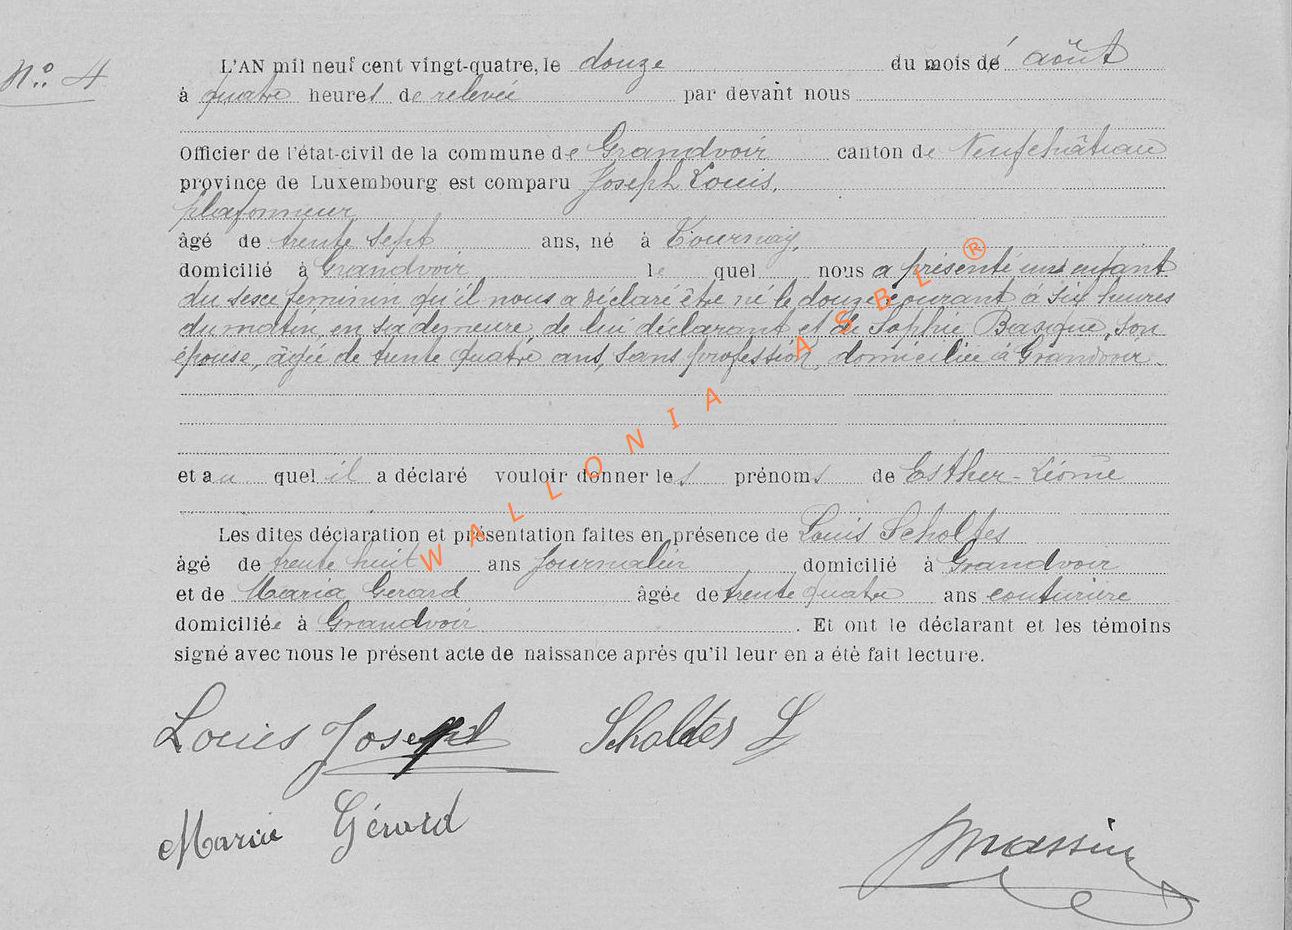 N° 4
L'AN mil neuf cent vingt-quatre, le douze du mois de août
à quatre heures de relevée par devant nous
Officier de l'état-civil de la commune de Grandvoir canton de Neufchâteau
province de Luxembourg est comparu Joseph Louis,
plafonneur
âgé de trente sept ans, né à Tournay,
domicilié à Grandvoir le quel nous a présenté un enfant
du sexe feminin qu'il nous a déclaré être né le douze courant à six heures
du matin, en sa demeure, de lui déclarant et de Sophie Basque, son
épouse, âgée de trente quatre ans, sans profession, domiciliée à Grandvoir
et au quel il a déclaré vouloir donner les prénoms de Esther-Léonie
Les dites déclaration et présentation faites en présence de Louis Scholtes
âgé de trente huit ans journalier domicilié à Grandvoir
et de Maria Gerard âgée de trente quatre ans couturière
domiciliée à Grandvoir. Et ont le déclarant et les témoins
signé avec nous le présent acte de naissance après qu'il leur en a été fait lecture.
Louis Joseph Scholtes L
Maria Gérard
Massin
WALLONIA ASBL ®